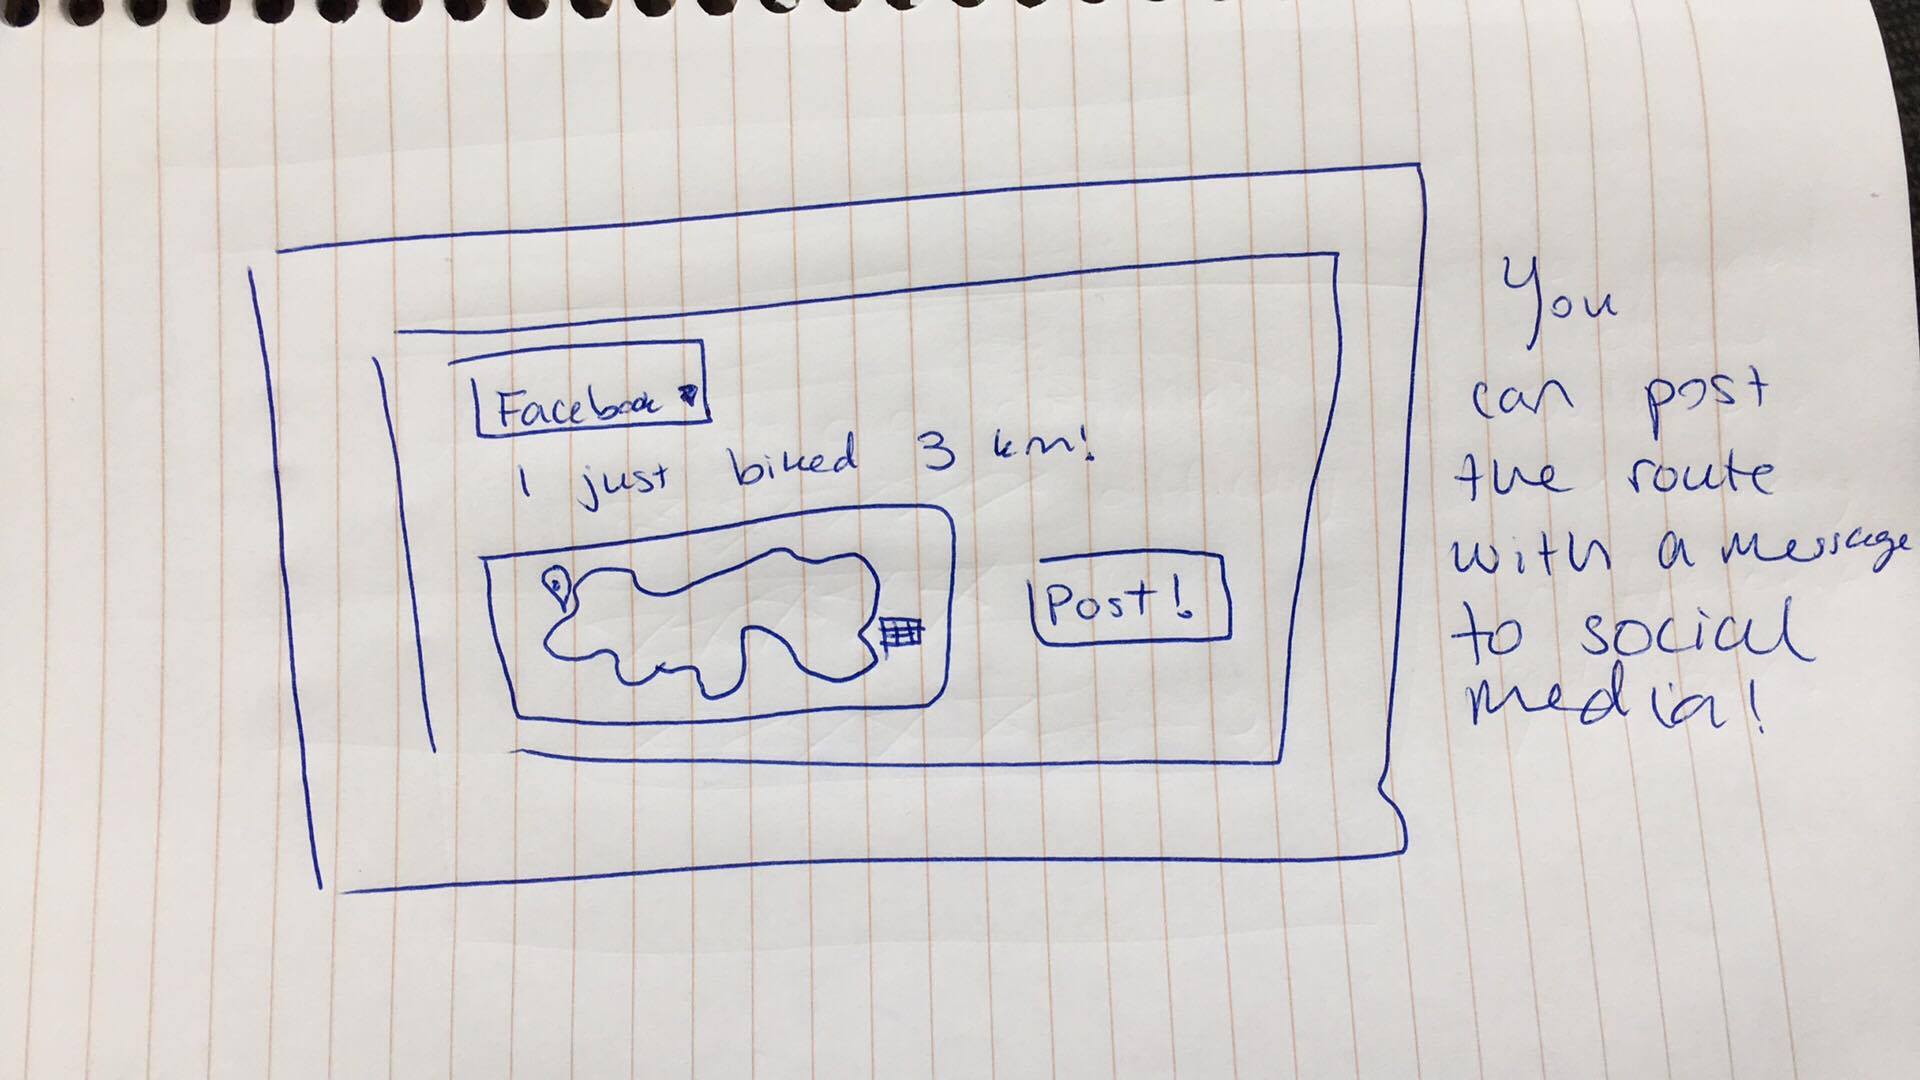 Facebook
I just biked 3 km!
Post!
You
can post
the route
with a message
to social
media!